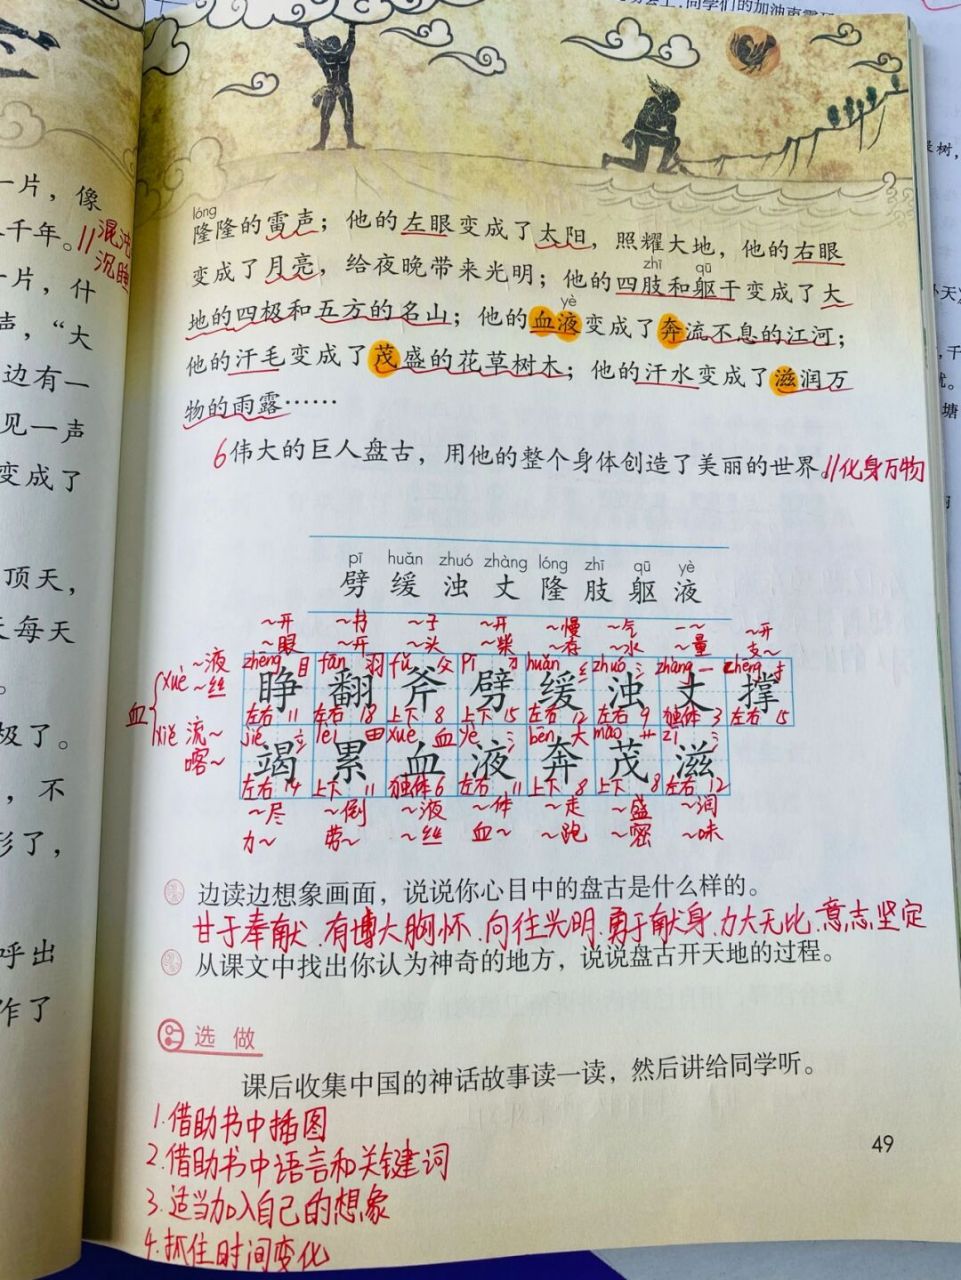 一片，像
千年。//混沌
沉睡
一片，什
声，“大
边有一
见一声
变成了
顶天，
每天
极了。
，不
形了，
呼出
作了
lóng
隆隆的雷声；他的左眼变成了太阳，照耀大地，他的右眼
zhī qū
变成了月亮，给夜晚带来光明；他的四肢和躯干变成了大
yè
地的四极和五方的名山；他的血液变成了奔流不息的江河；
他的汗毛变成了茂盛的花草树木；他的汗水变成了滋润万
物的雨露……
6伟大的巨人盘古，用他的整个身体创造了美丽的世界。//化身万物
pī huǎn zhuó zhàng lóng zhī qū yè
劈 缓 浊 丈 隆 肢 躯 液
~开 ~书 ~子 ~开 ~慢 ~气 一~ ~开
~眼 ~开 ~头 ~柴 ~存 ~水 ~量 支~
xuè ~液 ~丝
zhēng 目 fān 羽 fǔ 父 pī 刀 huǎn 纟 zhuó 氵 zhàng 一 chēng 扌
睁 翻 斧 劈 缓 浊 丈 撑
血
左右 11 左右 18 上下 8 上下 15 左右 12 左右 9 独体 3 左右 15
xiè 流~ 喀~
jié 立 lèi 田 xuè 血 yè 氵 bēn 大 mào 艹 zī 氵
竭 累 血 液 奔 茂 滋
左右 14 上下 11 独体 6 左右 11 上下 8 上下 8 左右 12
~尽 ~倒 ~液 ~体 ~走 ~盛 ~润
力~ 劳~ ~丝 血~ ~跑 ~密 ~味
边读边想象画面，说说你心目中的盘古是什么样的。
甘于奉献、有博大胸怀、向往光明、勇于献身、力大无比、意志坚定
从课文中找出你认为神奇的地方，说说盘古开天地的过程。
选做
课后收集中国的神话故事读一读，然后讲给同学听。
1.借助书中插图
2.借助书中语言和关键词
3.适当加入自己的想象
4.抓住时间变化
49